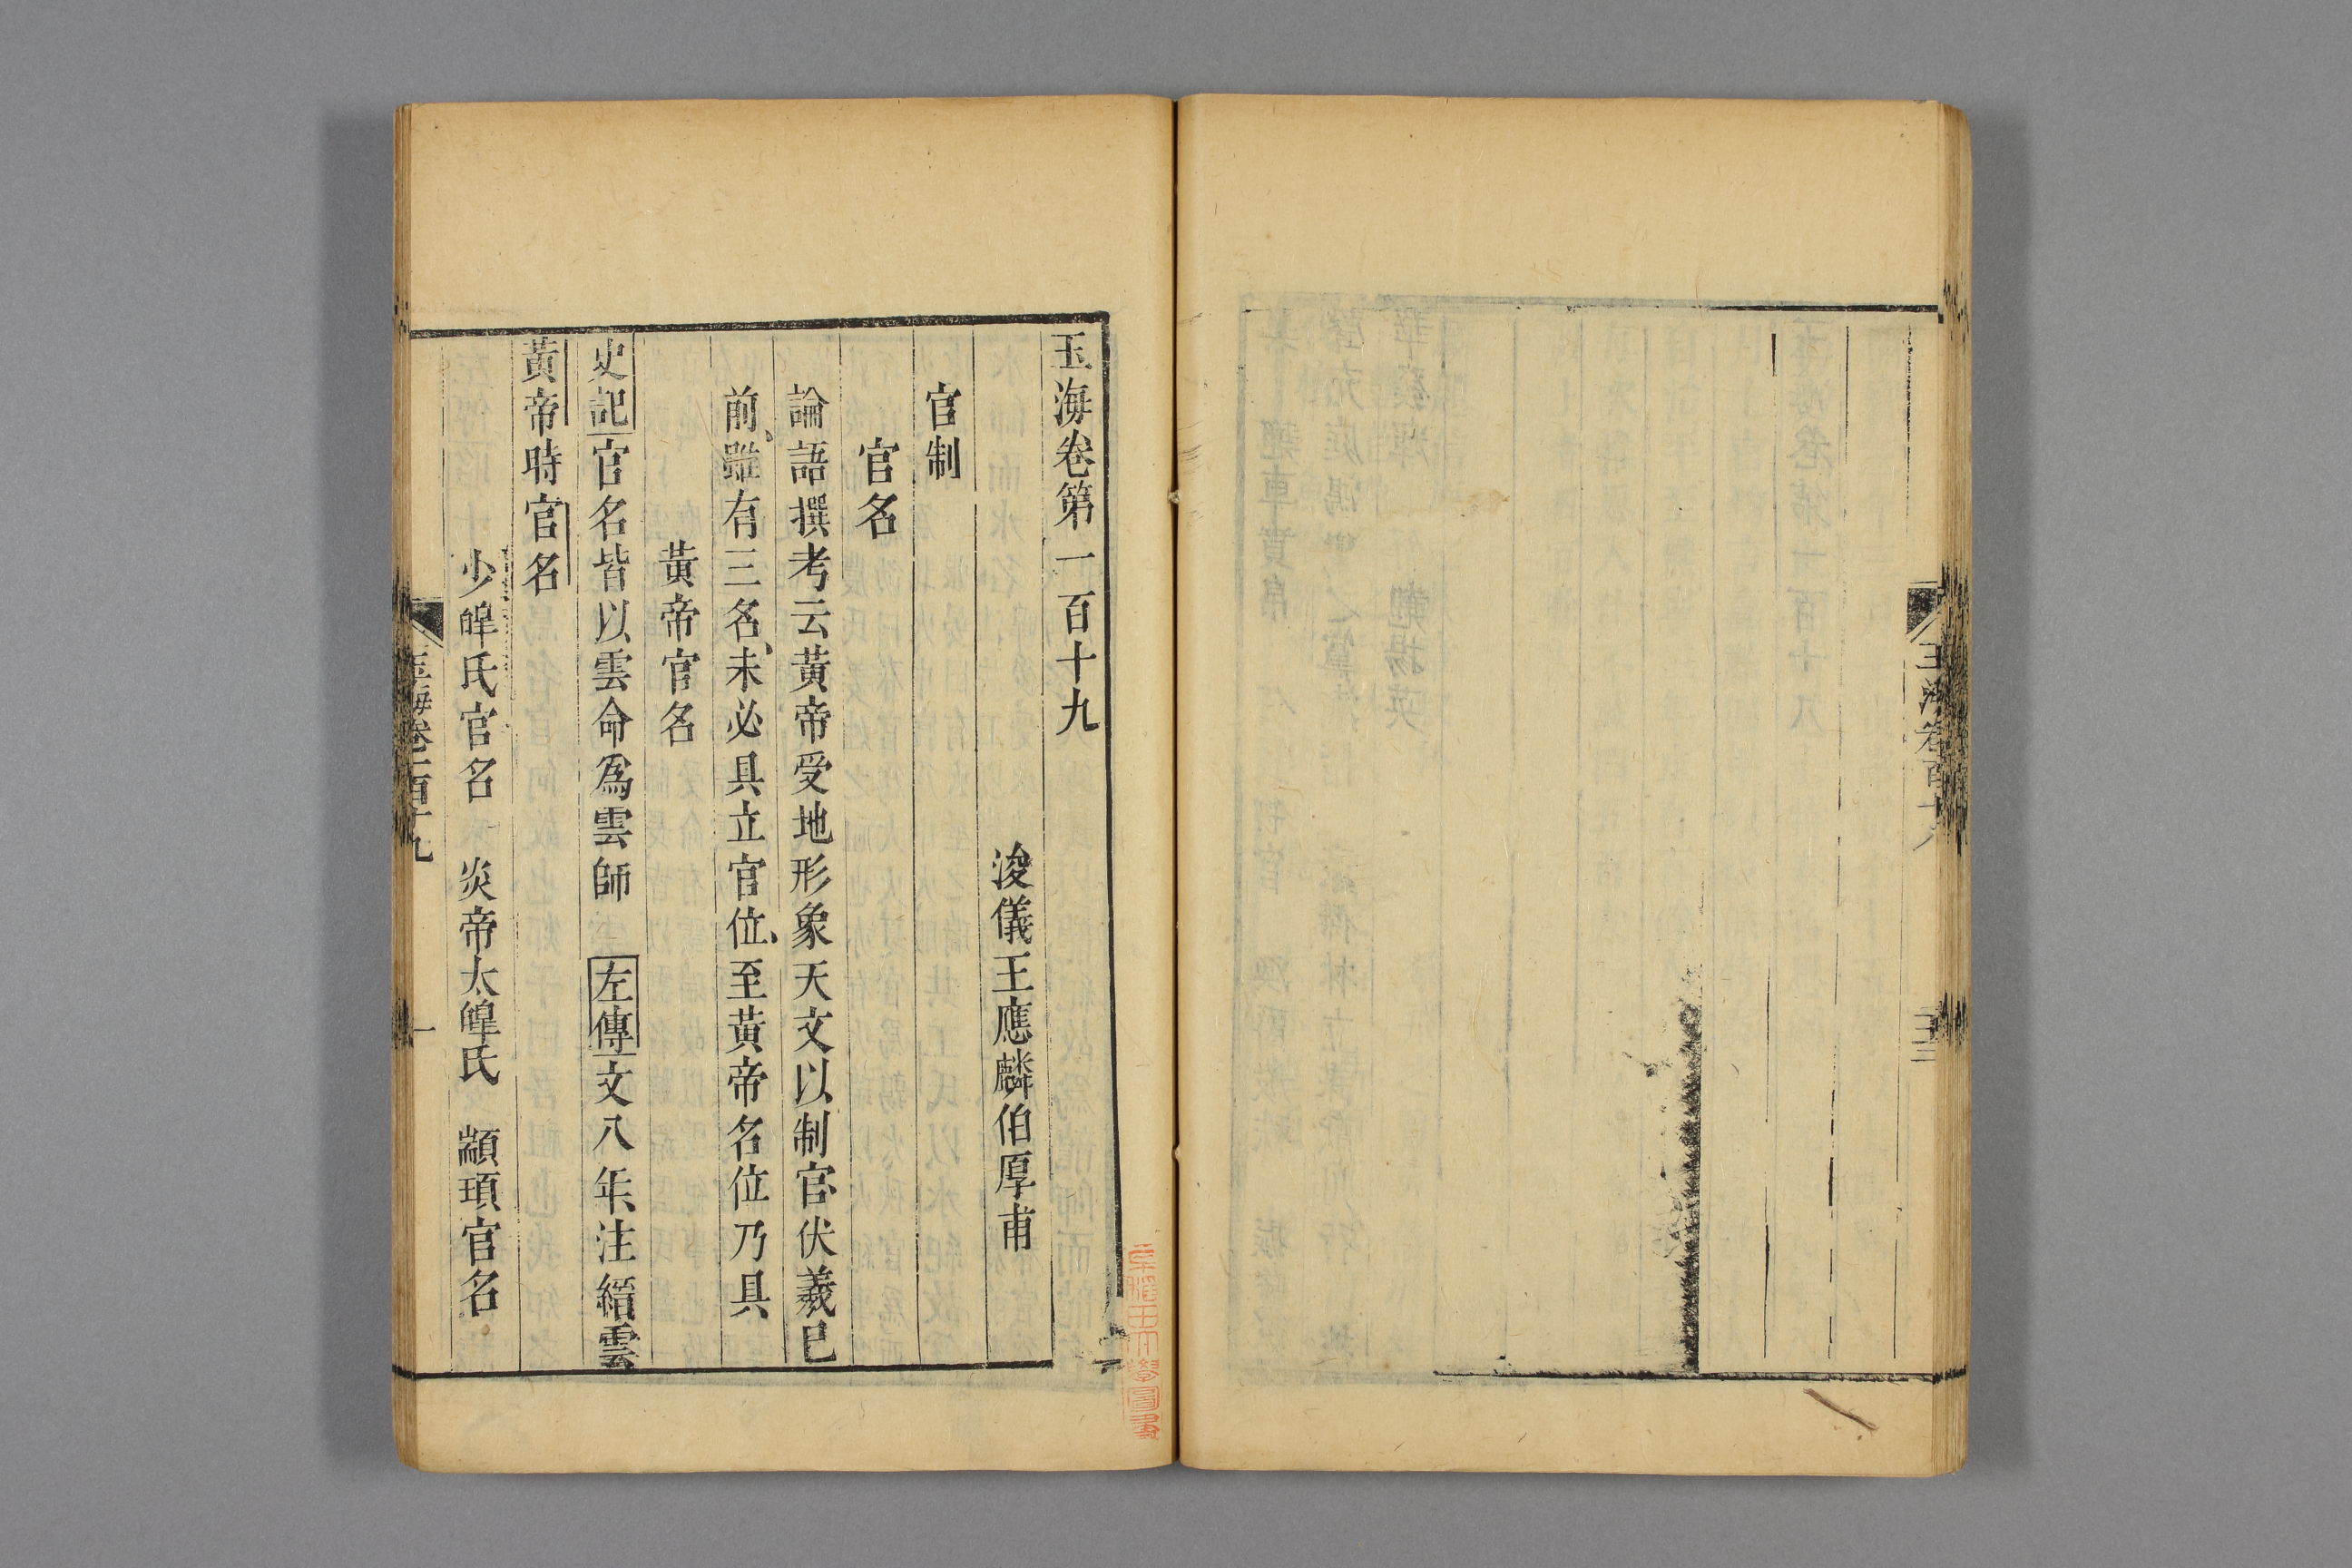 玉海卷第一百十九
浚儀王應麟伯厚甫
官制
官名
論語撰考云黃帝受地形象天文以制官伏羲巳
前雖有三名未必具立官位至黃帝名位乃具
黃帝官名
史記官名皆以雲命爲雲師 左傳文八年注縉雲
黃帝時官名
少皥氏官名 炎帝太皥氏 顓頊官名
玉海卷一百十九
一